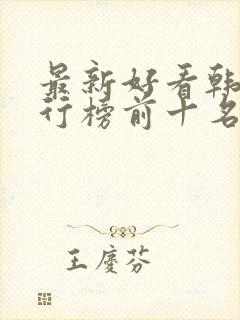 最新好看韩
行榜前十名
王庆芬